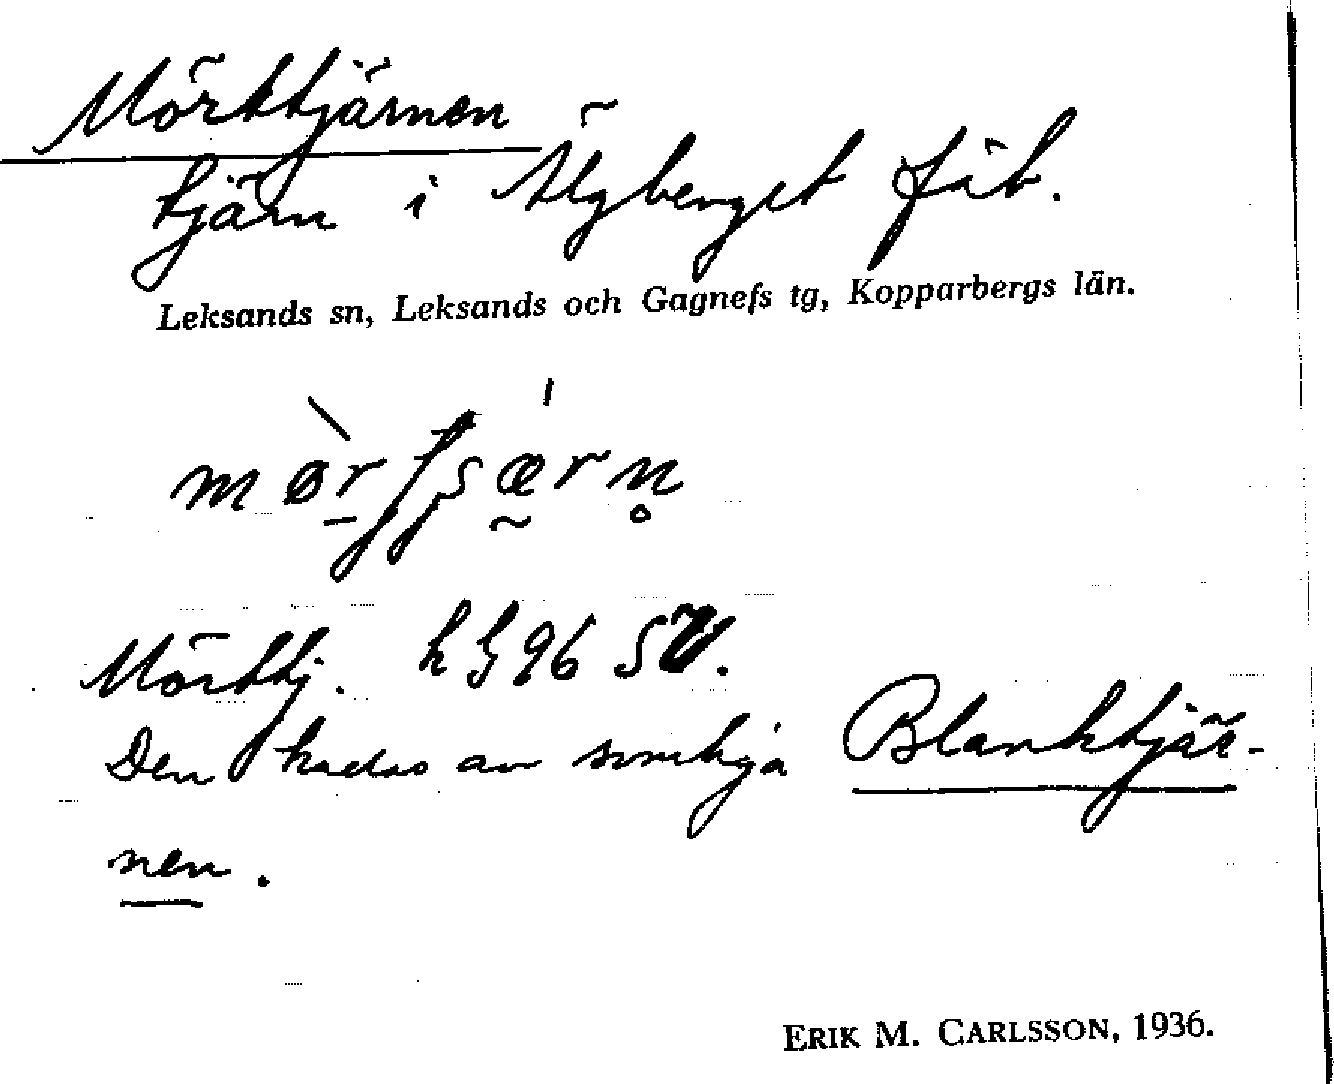 Mörttjärnen
tjärn i Älgberget fäb.
Leksands sn, Leksands och Gagnefs tg, Kopparbergs län.
Mörttj. h§96 SV.
Den kallas av somliga Blanktjär-
nen.
ERIK M. CARLSSON, 1936.